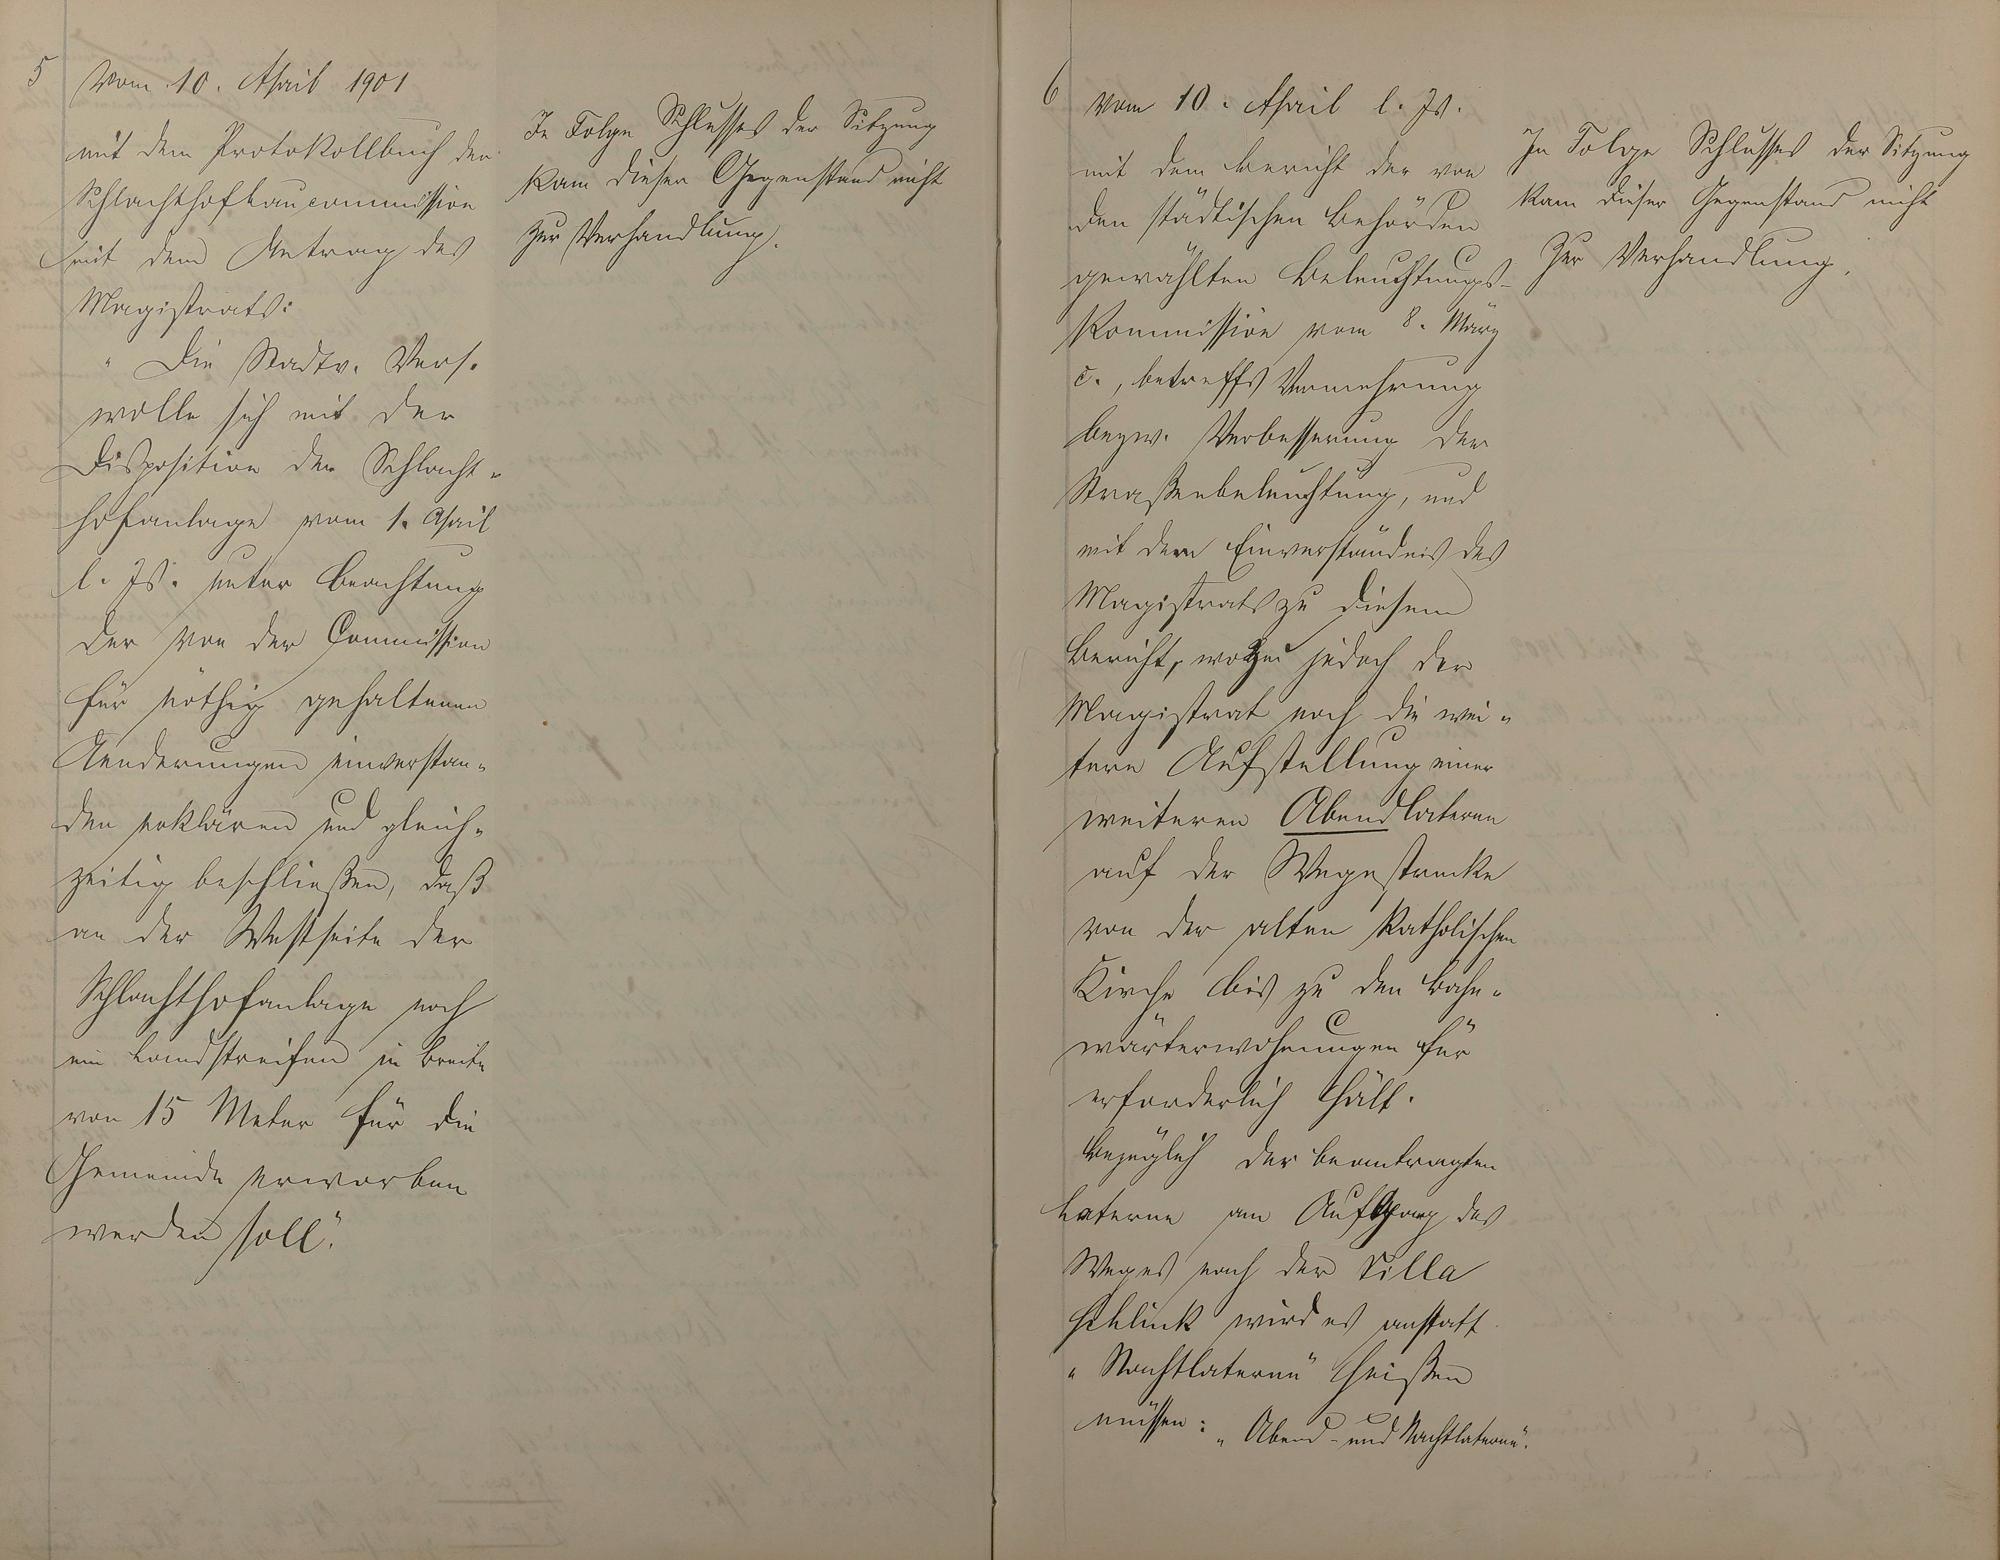 5
Vom 10. April 1901
mit dem Protokollbuch der
Schlachthofbaucommission
mit dem Antrag des
Magistrats:
"Die Stadtv. Vers.
wolle sich mit der
Disposition der Schlacht-
hofanlage vom 1. April
l. Js. unter Beachtung
der von der Commission
für nöthig gehaltenen
Aenderungen einverstan-
den erklären und gleich-
zeitig beschließen, daß
an der Westseite der
Schlachthofanlage noch
ein Landstreifen in Breite
von 15 Meter für die
Gemeinde erworben
werden soll".
In Folge Schlusses der Sitzung
kam dieser Gegenstand nicht
zur Verhandlung.
6
Vom 10. April l. Js.
mit dem Bericht der von
den städtischen Behörden
gewählten Beleuchtungs-
Kommission vom 8. März
c., betreffs Vermehrung
bezw. Verbesserung der
Straßenbeleuchtung, und
mit dem Einverständnis des
Magistrats zu diesem
Bericht, wozu jedoch der
Magistrat noch die wei-
tere Aufstellung einer
weiteren Abendlaterne
auf der Wegestrecke
von der alten Katholischen
Kirche bis zu den Bahn-
wärterwohnungen für
erforderlich hält.
Bezüglich der beantragten
Laterne am Aufgang des
Weges nach der Villa
Schlink wird es anstatt
"Nachtlaterne" heißen
müssen: "Abend- und Nachtlaterne".
In Folge Schlusses der Sitzung
kam dieser Gegenstand nicht
zur Verhandlung.